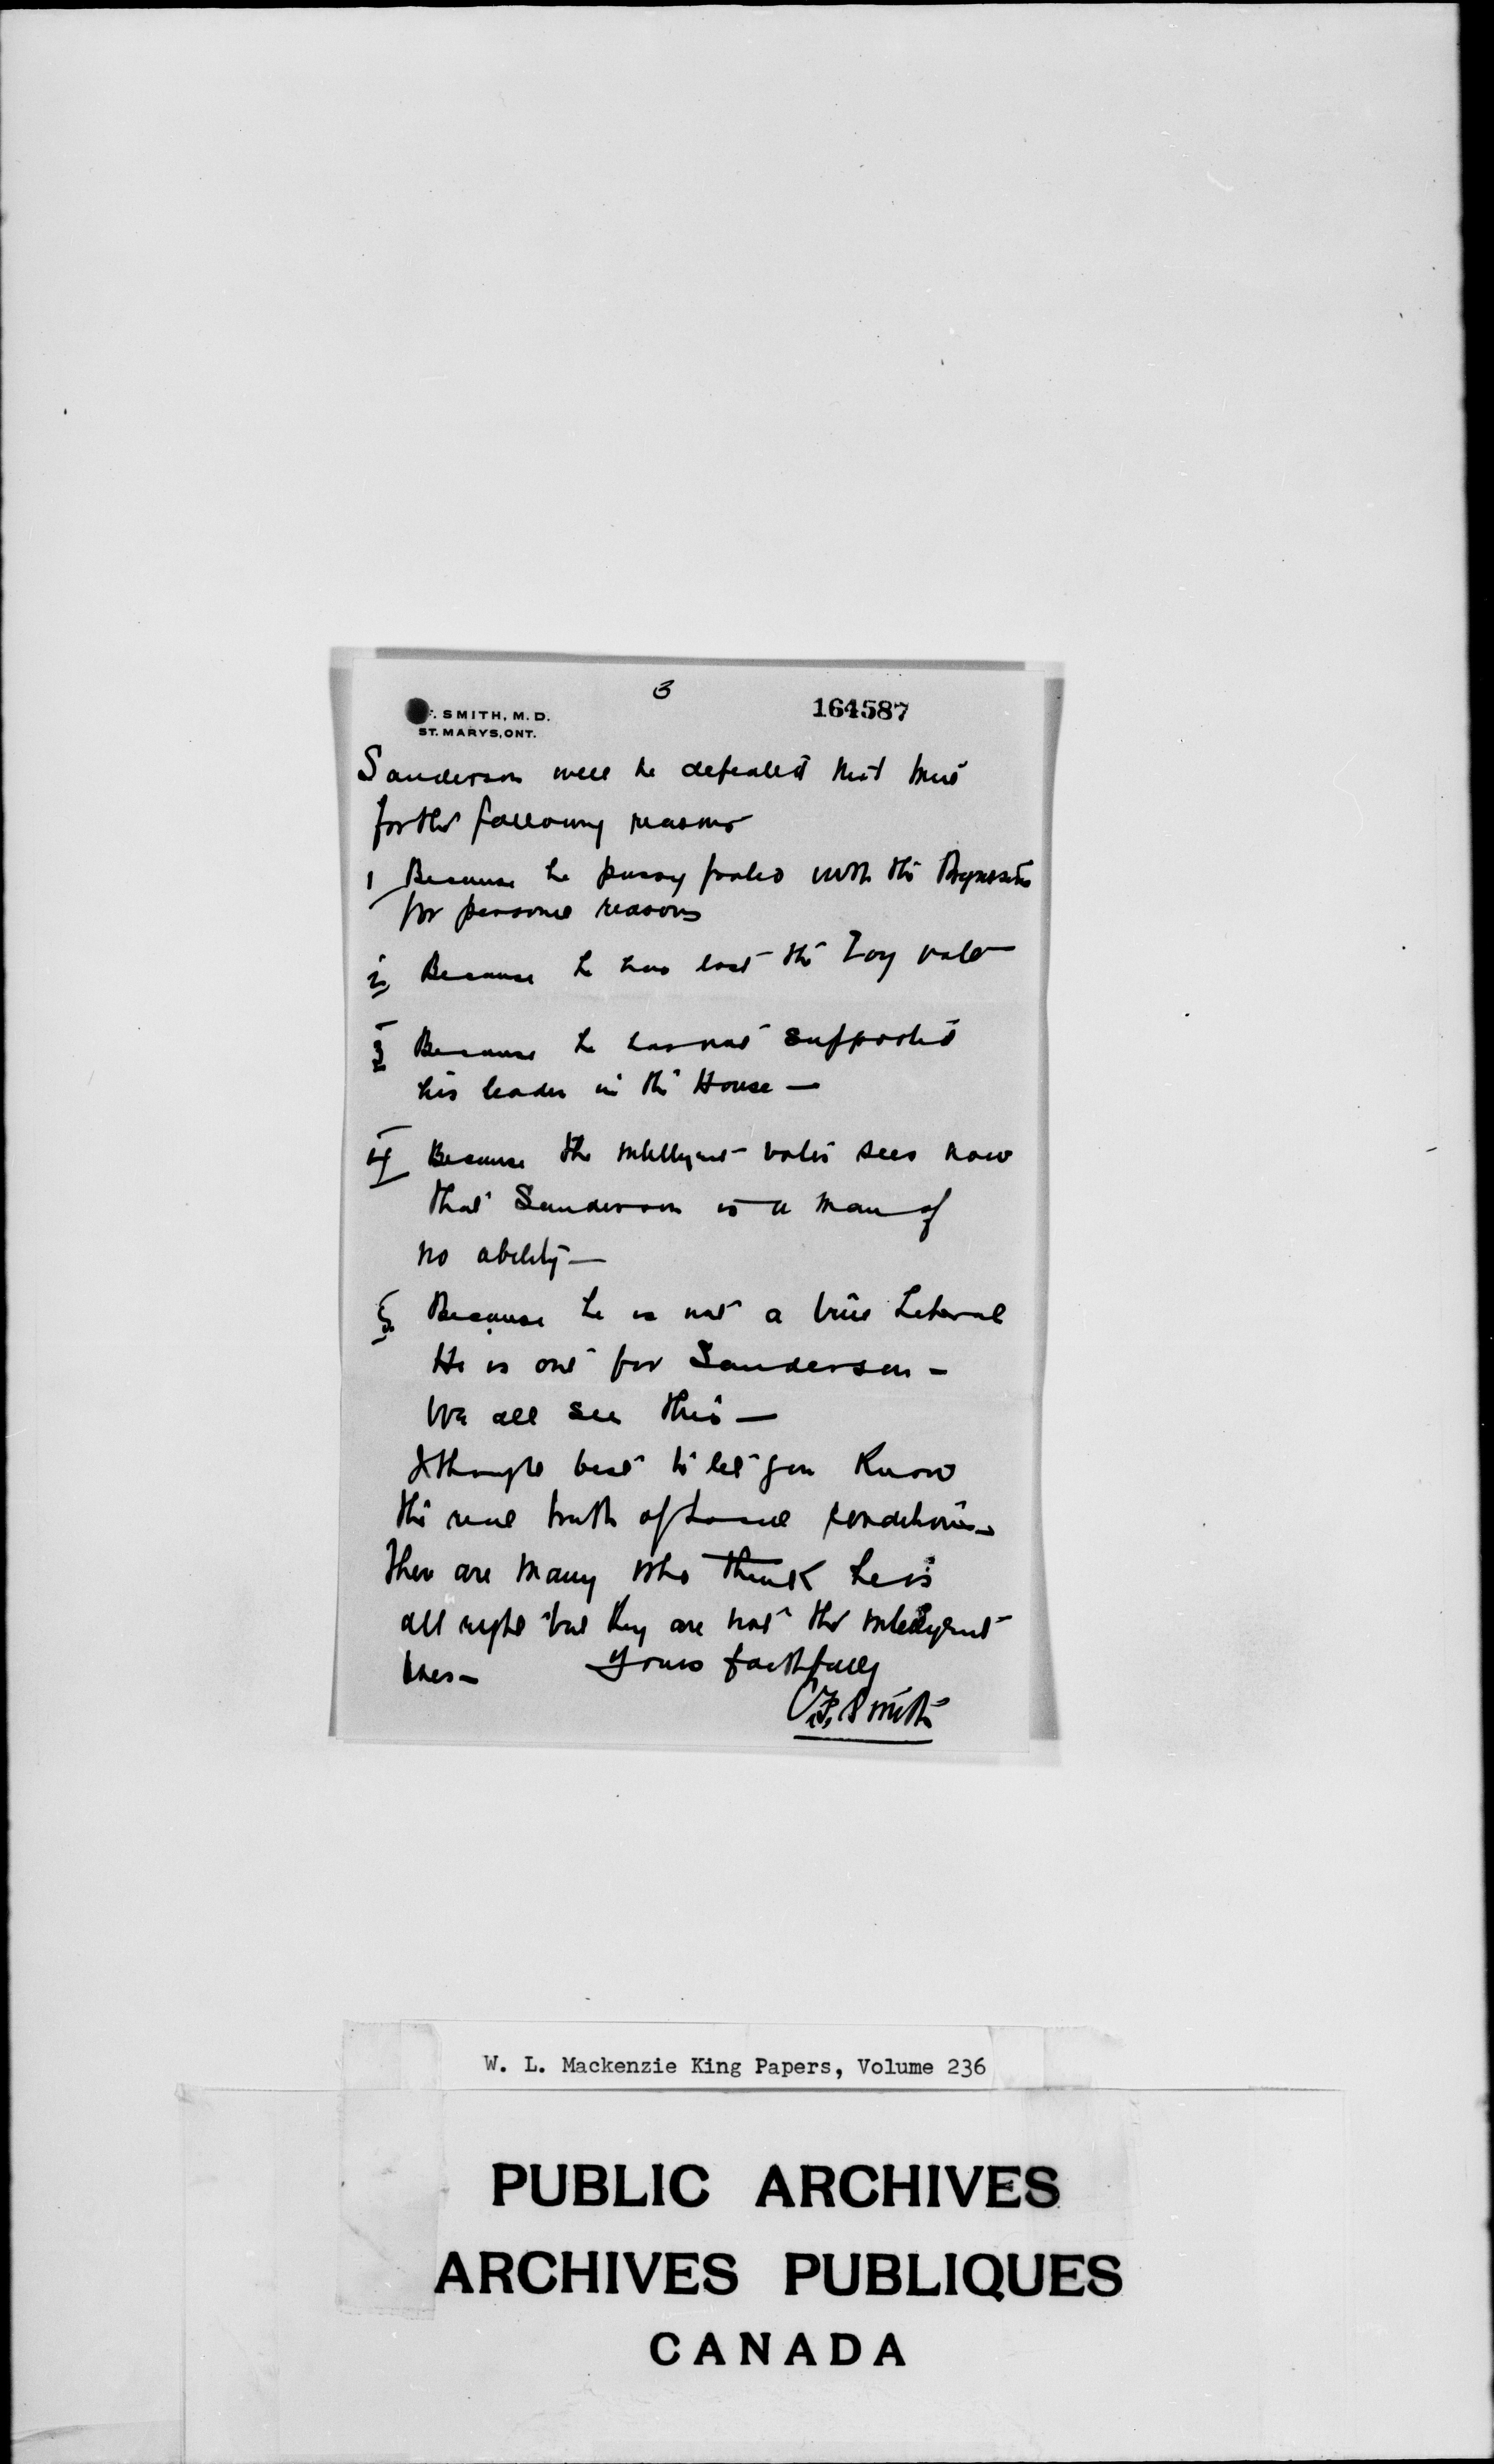 3
164587
. SMITH, M. D.
ST. MARYS, ONT.
Sanderson will be defeated next time
for the following reasons
1 Because he pussy footed with the Progressives
for personal reasons
2 Because he has lost the Tory vote
3 Because he has not supported
his leader in the House —
4 Because the intelligent voter sees now
that Sanderson is a man of
no ability —
5 Because he is not a true Liberal
He is out for Sanderson —
We all see this —
I thought best to let you know
the real truth of local conditions —
There are many who think he is
all right but they are not the intelligent
ones — Yours faithfully
C. F. Smith
W. L. Mackenzie King Papers, Volume 236
PUBLIC ARCHIVES
ARCHIVES PUBLIQUES
CANADA